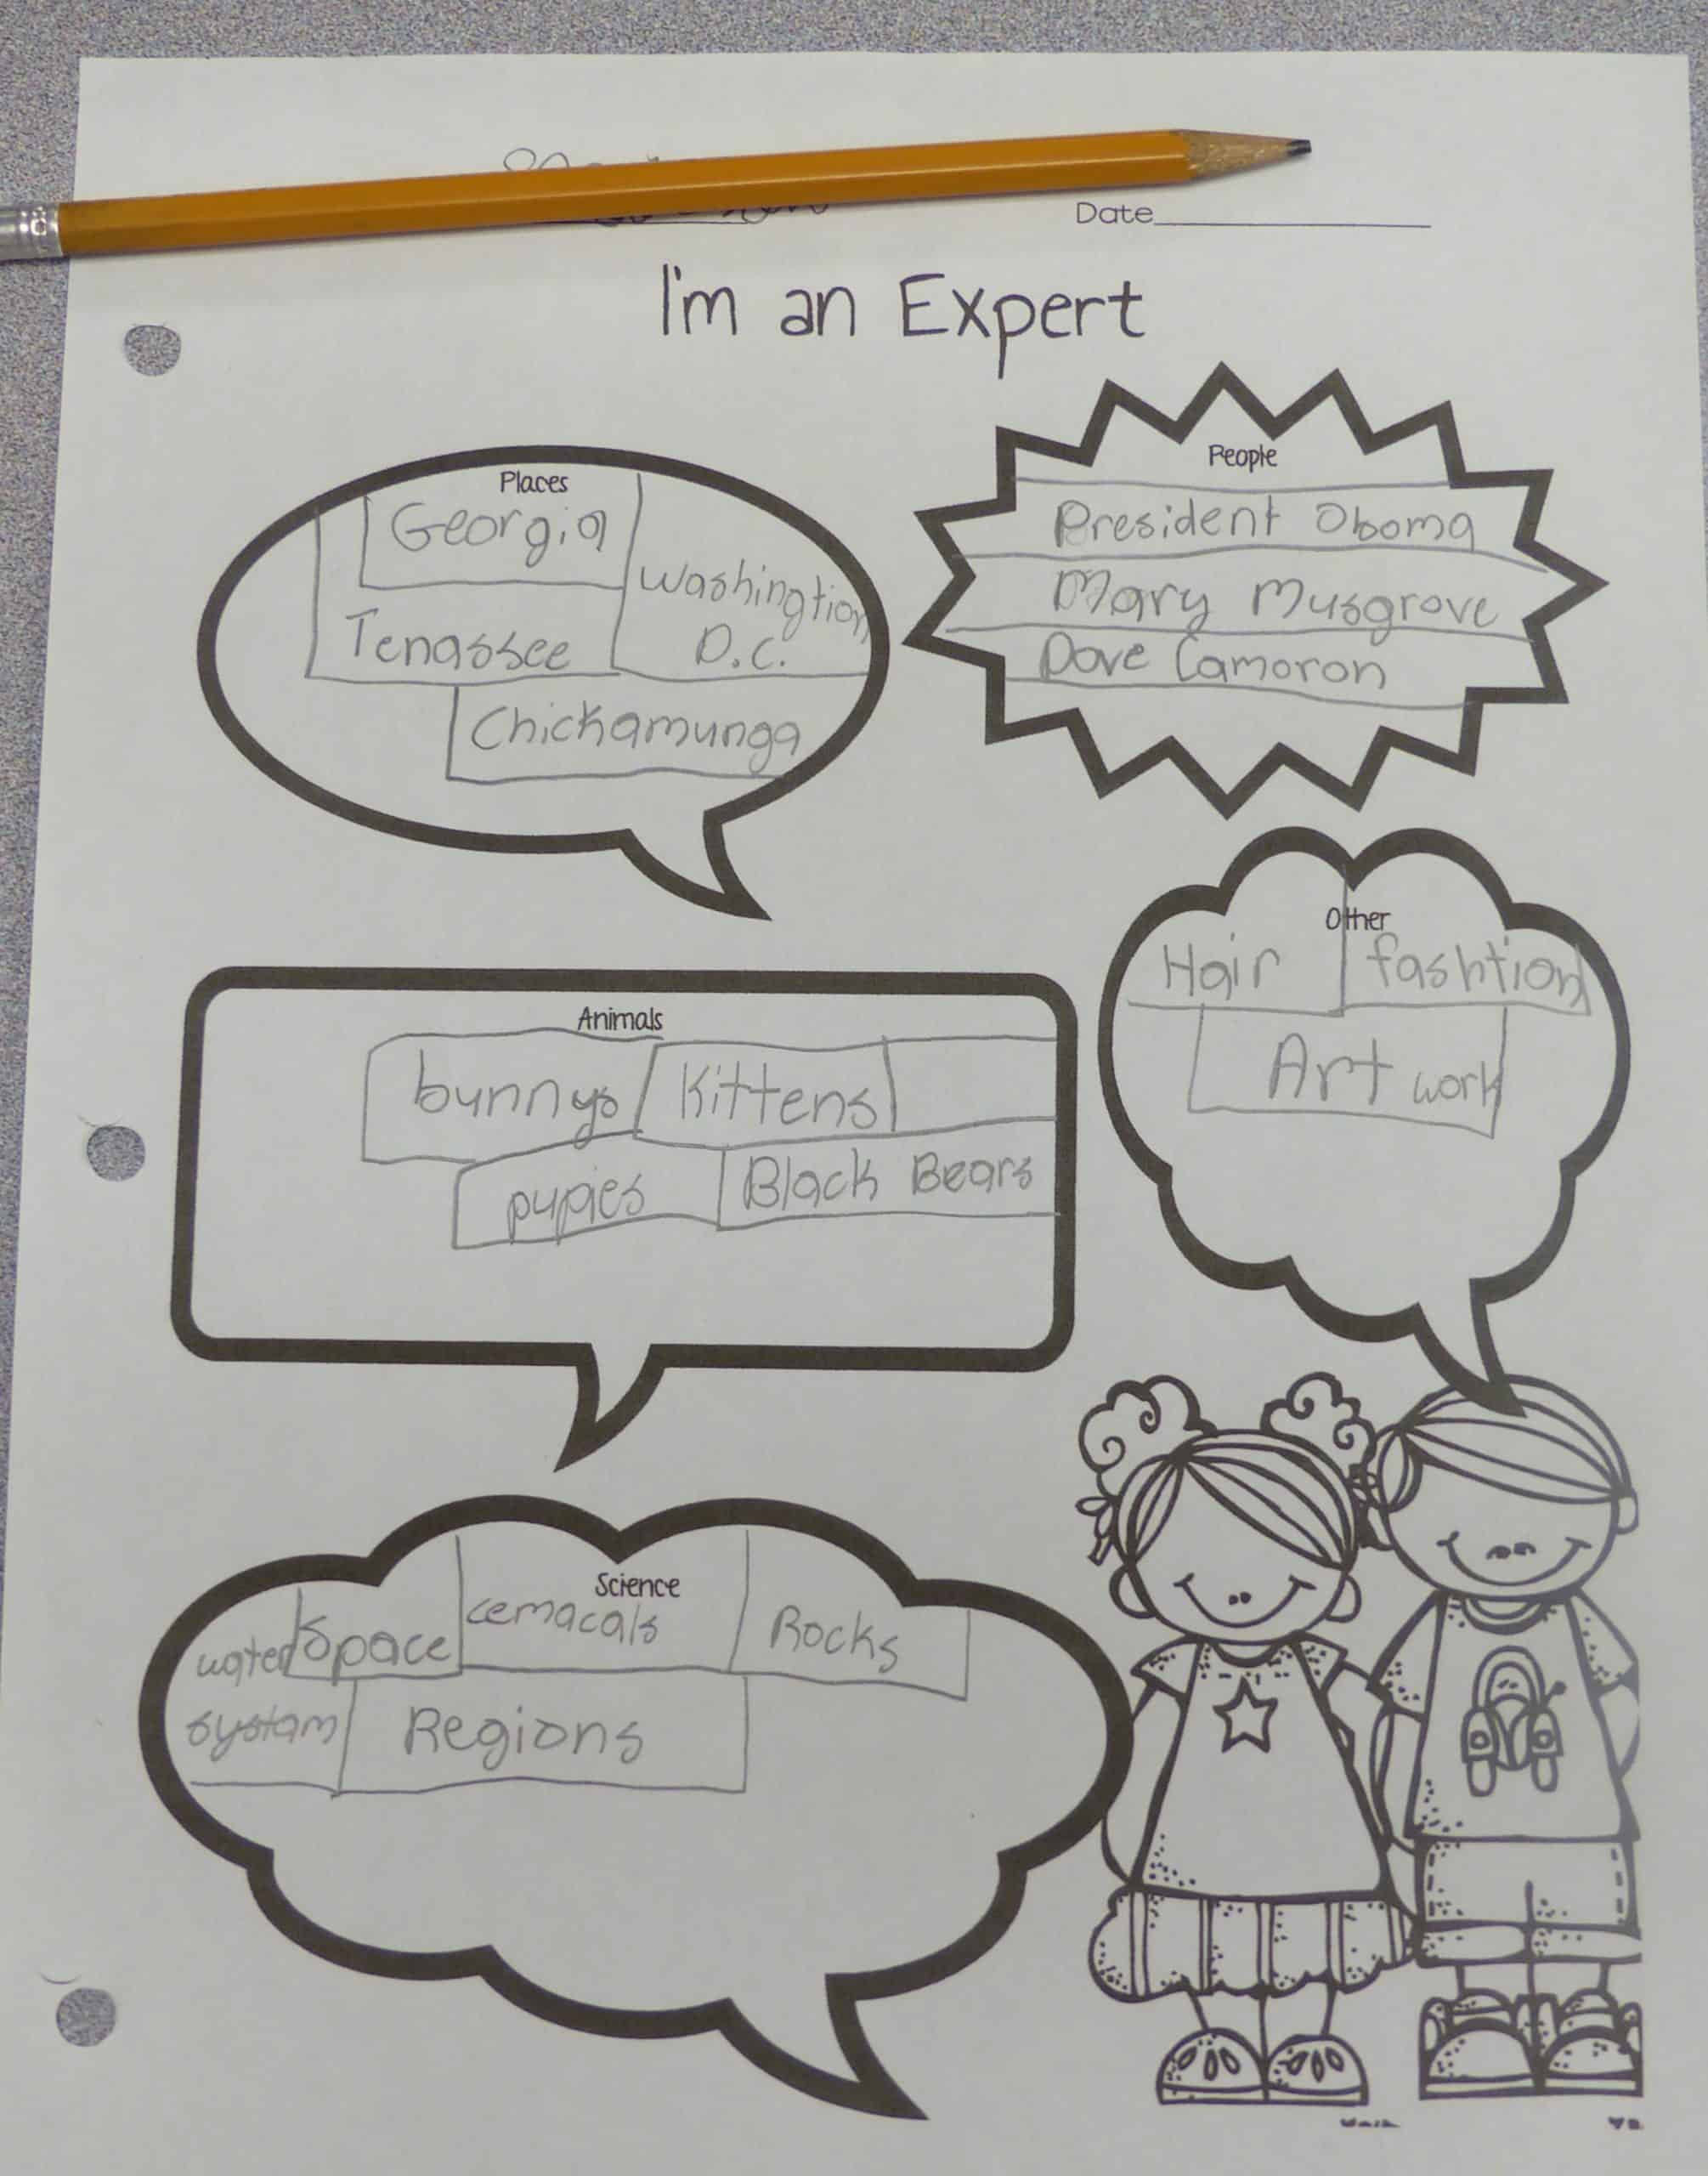 Date
I'm an Expert
Places
Georgia
Washingtion
D.C.
Tenassee
Chickamunga
People
President Oboma
Mary Musgrove
Dove Camoron
Other
Hair fashtion
Art work
Animals
bunnys Kittens
pupies Black Bears
Science
water Space cemacals Rocks
systam Regions